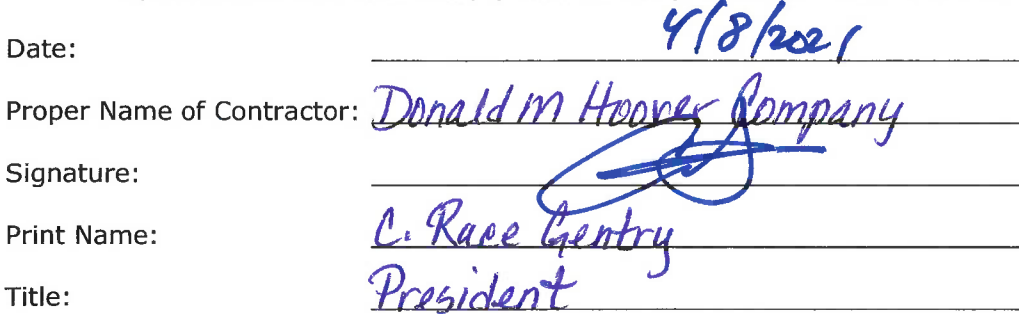 Date: 4/8/2021
Proper Name of Contractor: Donald M Hoover Company
Signature:
Print Name: C. Race Gentry
Title: President